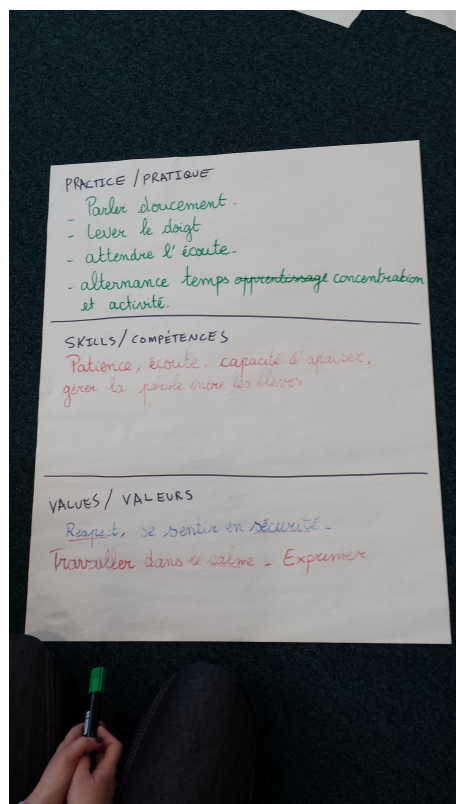 PRACTICE / PRATIQUE
- Parler doucement.
- lever le doigt
- attendre l'écoute.
- alternance temps apprentissage concentration
et activité.
SKILLS / COMPÉTENCES
Patience, écoute, capacité d'apaiser,
gérer la parole entre les élèves
VALUES / VALEURS
Respect, se sentir en sécurité -
Travailler dans le calme - Exprimer